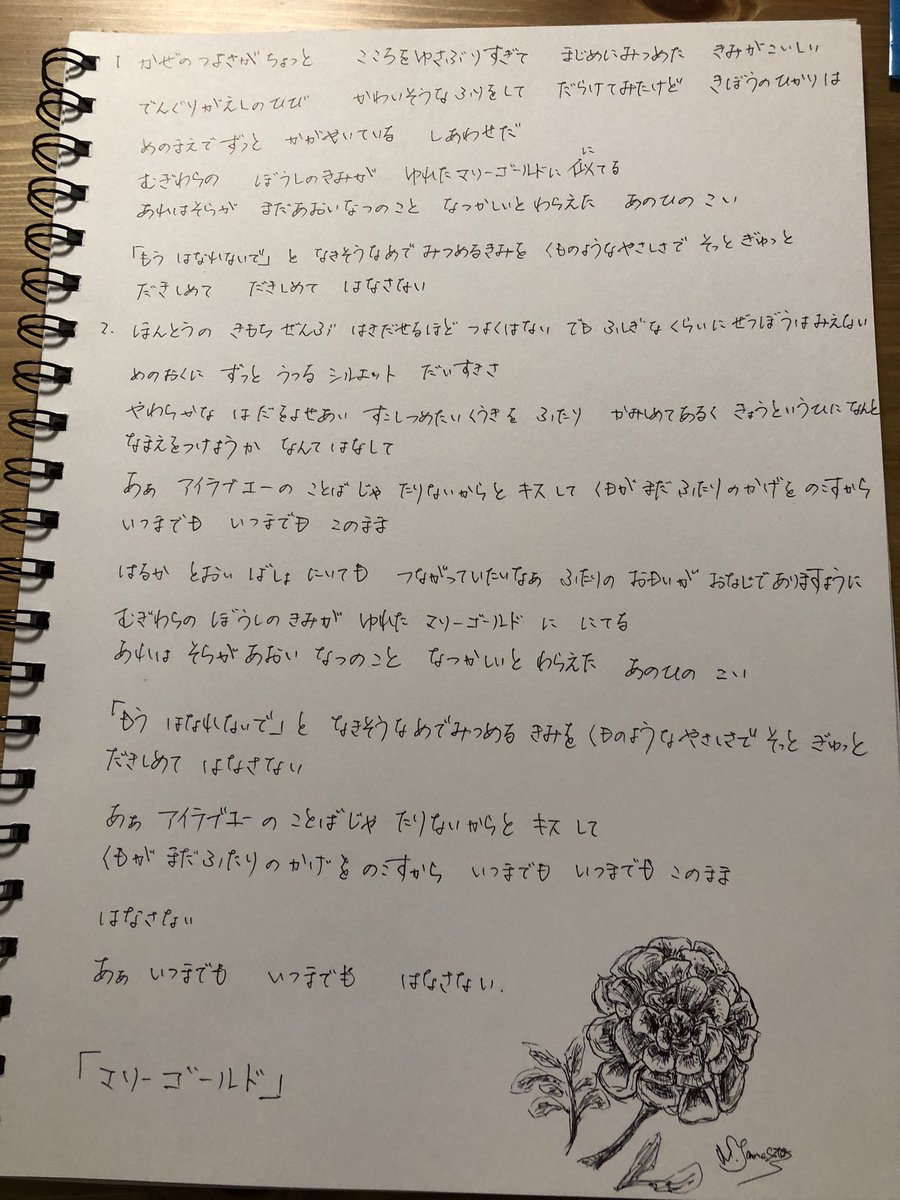 1 かぜのつよさが ちょっと こころを ゆさぶりすぎて まじめにみつめた きみがこいしい
でんぐりがえしのひび かわいそうな ふりをして だらけてみたけど きぼうのひかりは
めのまえで ずっと かがやいている しあわせだ
むぎわらの ぼうしのきみが ゆれたマリーゴールドに 似てる
に
あれはそらが まだあおいなつのこと なつかしいとわらえた あのひの こい
「もう はなれないで」と なきそうなめで みつめるきみを くものようなやさしさで そっと ぎゅっと
だきしめて だきしめて はなさない
2. ほんとうの きもち ぜんぶ はきだせるほど つよくはない でも ふしぎな くらいに ぜつぼうは みえない
めのおくに ずっと うつる シルエット だいすきさ
やわらかな はだをよせあい すこしつめたいくうきを ふたり かみしめてあるく きょうというひに なんと
なまえをつけようか なんて はなして
あぁ アイラブユーの ことばじゃ たりないからと キス して くもが まだ ふたりのかげを のこすから
いつまでも いつまでも このまま
はるか とおい ばしょ にいても つながっていたいなぁ ふたりの おもいが おなじでありますように
むぎわらの ぼうしのきみが ゆれた マリーゴールド に にてる
あれは そらが あおい なつのこと なつかしいと わらえた あのひの こい
「もう はなれないで」と なきそうなめでみつめる きみを くものようなやさしさで そっと ぎゅっと
だきしめて はなさない
あぁ アイラブユーの ことばじゃ たりないからと キス して
くもが まだ ふたりの かげを のこすから いつまでも いつまでも このまま
はなさない
あぁ いつまでも いつまでも はなさない.
「マリーゴールド」